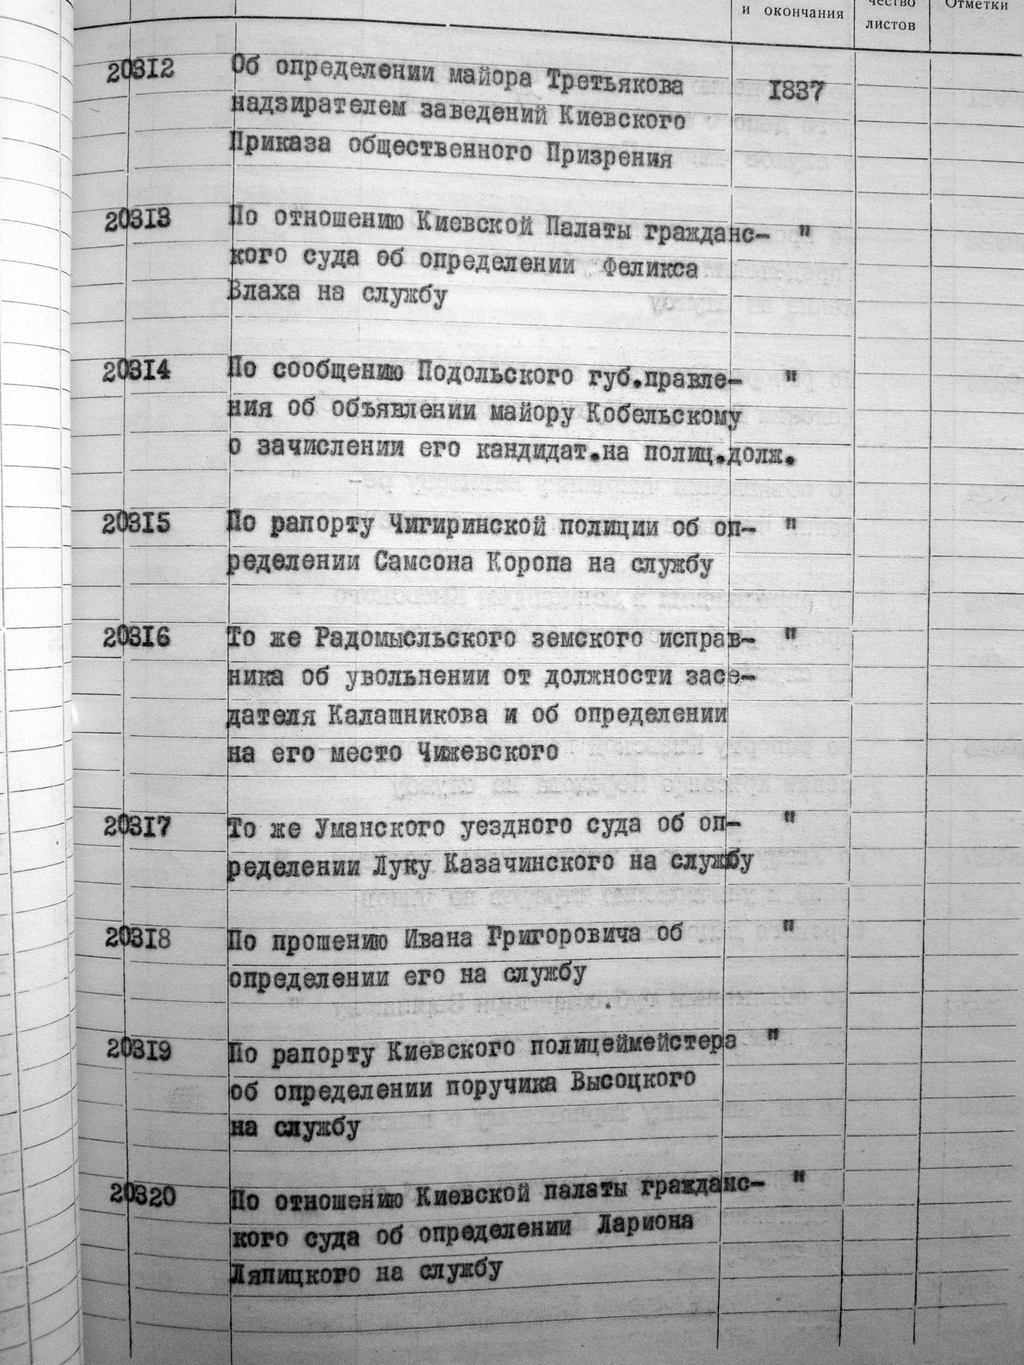 и окончания
чество
листов
Отметки
20312 Об определении майора Третьякова 1837
надзирателем заведений Киевского
Приказа общественного Призрения
20313 По отношению Киевской Палаты гражданс- "
кого суда об определении Феликса
Влаха на службу
20314 По сообщению Подольского губ.правле- "
ния об объявлении майору Кобельскому
о зачислении его кандидат.на полиц.долж.
20315 По рапорту Чигиринской полиции об оп- "
ределении Самсона Коропа на службу
20316 То же Радомысльского земского исправ- "
ника об увольнении от должности засе-
дателя Калашникова и об определении
на его место Чижевского
20317 То же Уманского уездного суда об оп- "
ределении Луку Казачинского на службу
20318 По прошению Ивана Григоровича об "
определении его на службу
20319 По рапорту Киевского полицеймейстера "
об определении поручика Высоцкого
на службу
20320 По отношению Киевской палаты гражданс- "
кого суда об определении Лариона
Ляпицкого на службу